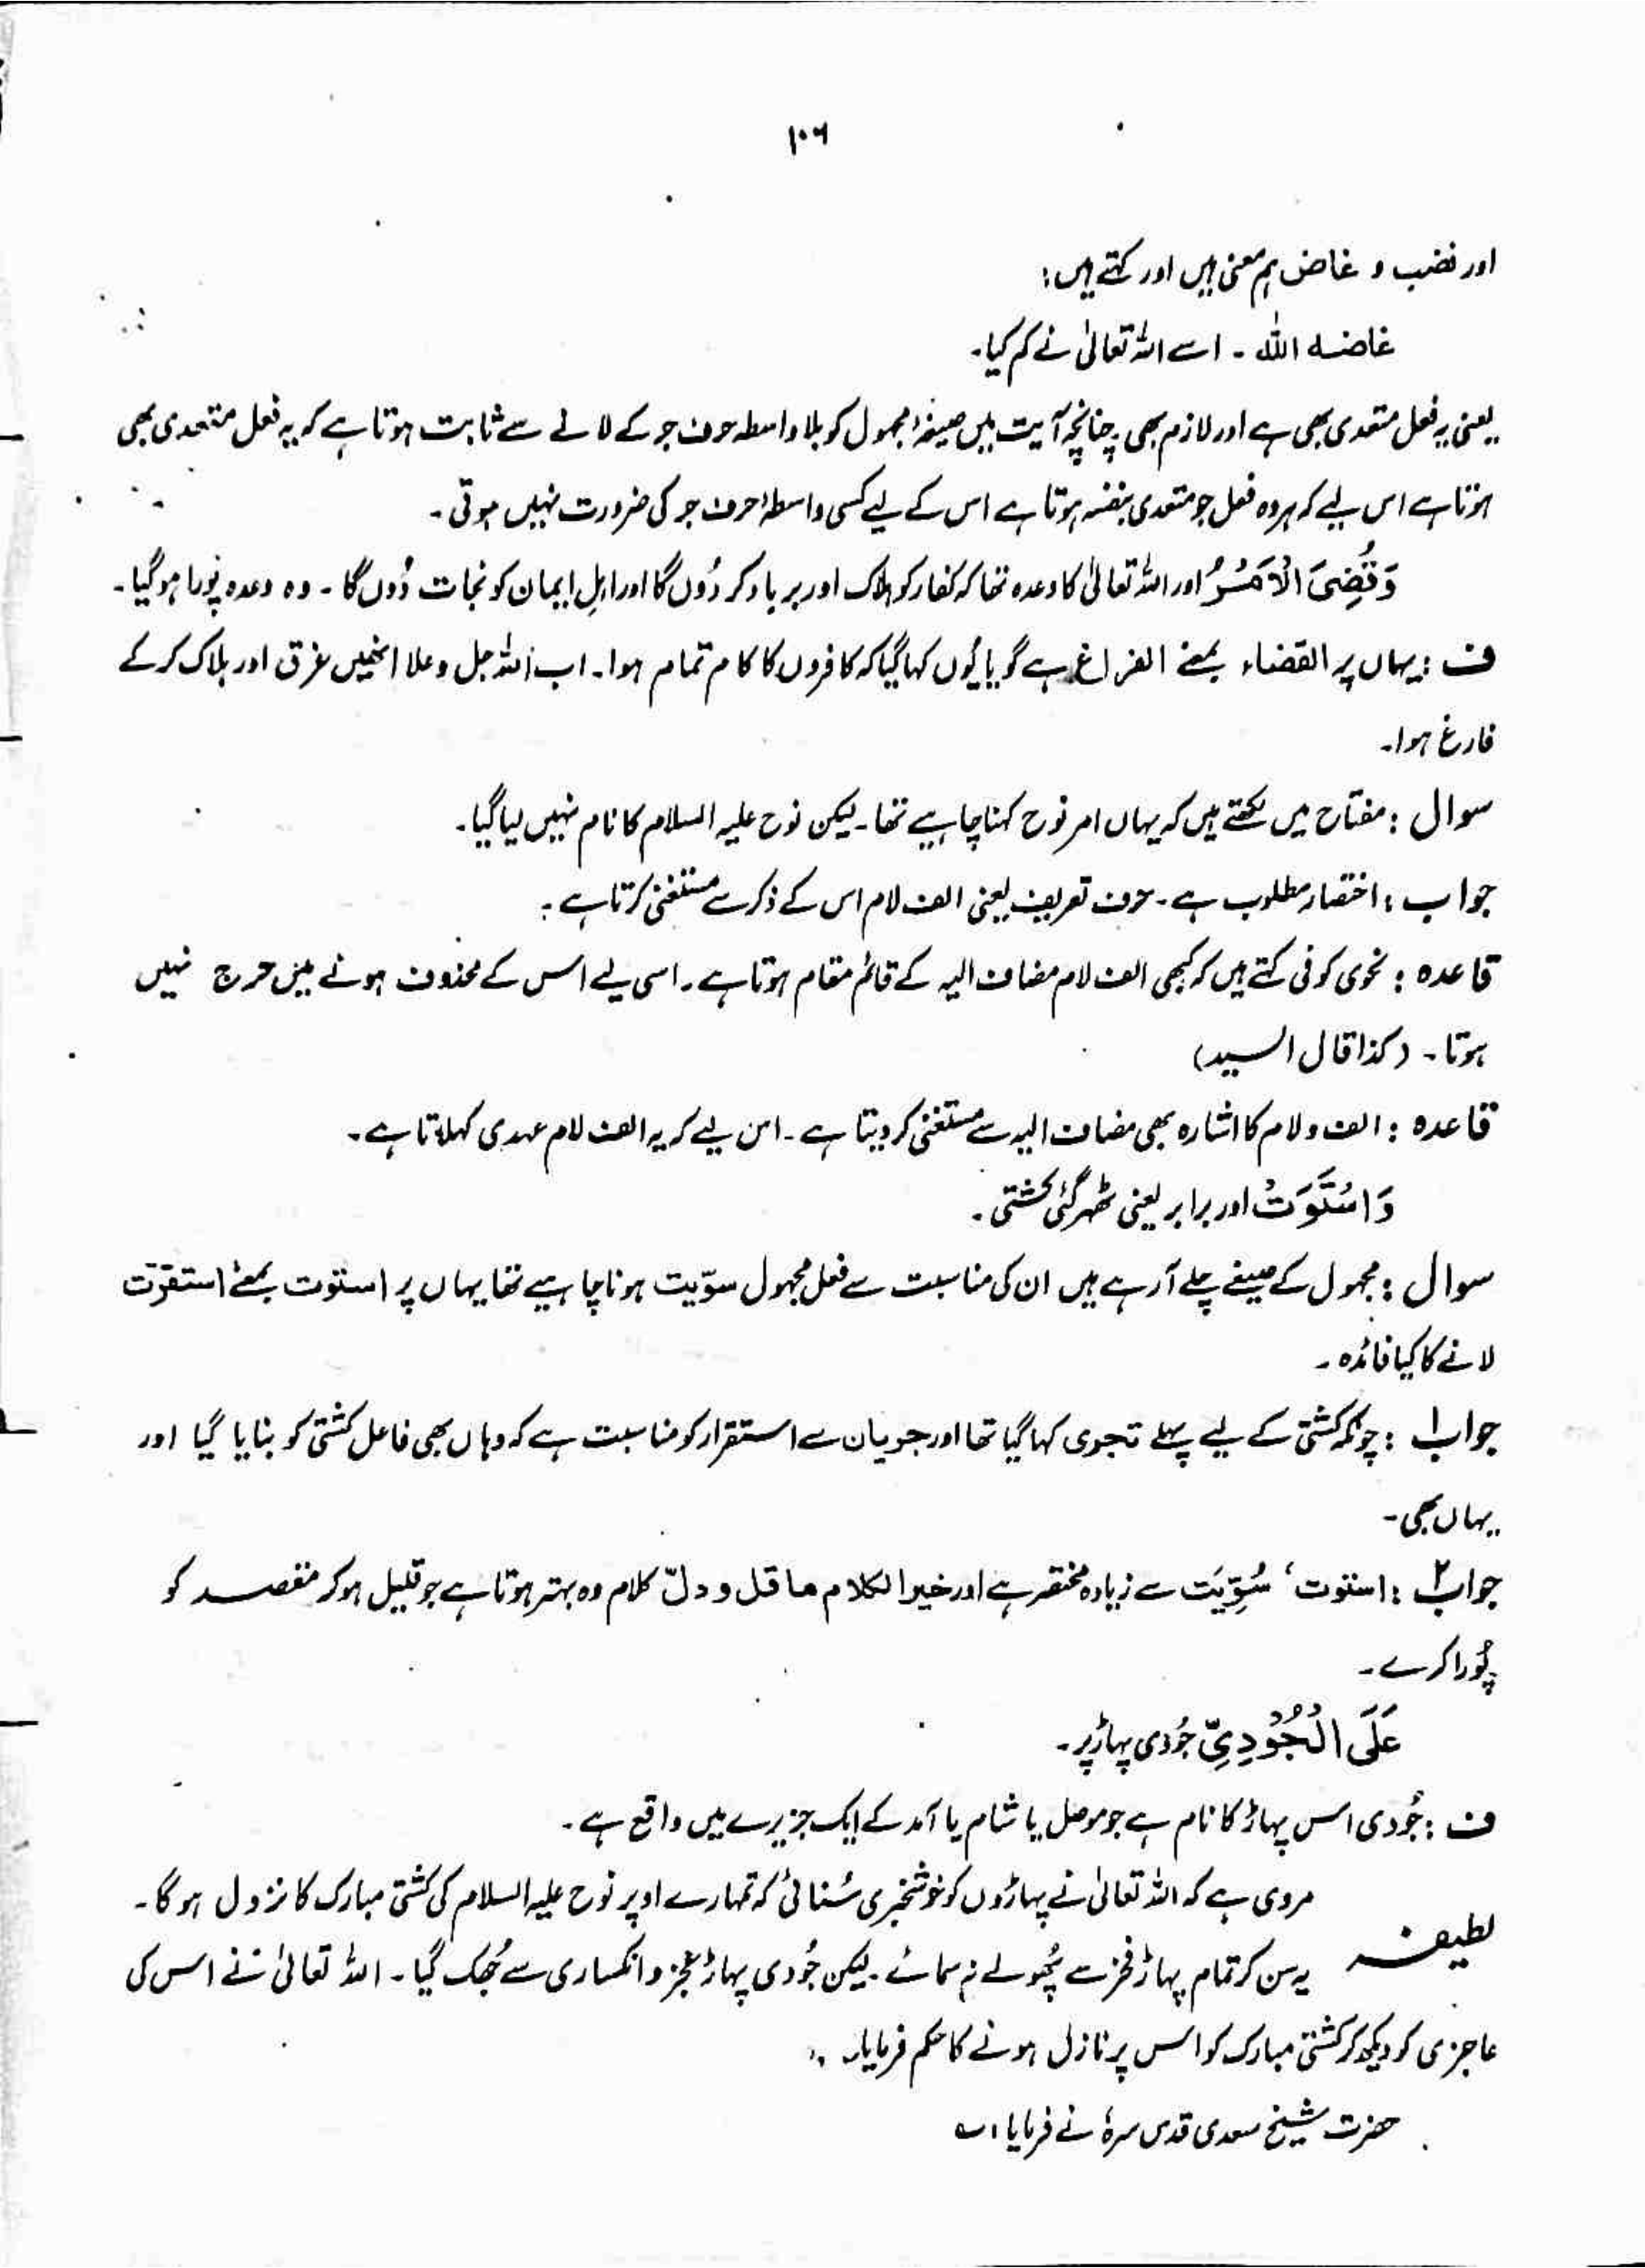 ۱۰۶
اور نضب و غاض ہم معنی ہیں اور کہتے ہیں:
غاضہ اللہ ۔ اسے اللہ تعالیٰ نے کم کیا۔
یعنی یہ فعل متعدی بھی ہے اور لازم بھی ۔ چنانچہ آیت میں صیغۂ مجہول کو بلا واسطہ حرف جر کے لانے سے ثابت ہوتا ہے کہ یہ فعل متعدی بھی
ہوتا ہے اس لیے کہ ہر وہ فعل جو متعدی بنفسہ ہوتا ہے اس کے لیے کسی واسطۂ حرف جر کی ضرورت نہیں ہوتی ۔
وَقُضِیَ الْاَمْرُ اور اللہ تعالیٰ کا وعدہ تھا کہ کفار کو ہلاک اور برباد کر دُوں گا اور اہلِ ایمان کو نجات دُوں گا ۔ وہ وعدہ پُورا ہو گیا ۔
ف : یہاں پر القضاء بمعنے الفراغ ہے گویا یُوں کہا گیا کہ کافروں کا کام تمام ہوا ۔ اب اللہ جل وعلا انھیں غرق اور ہلاک کر کے
فارغ ہوا۔
سوال : مفتاح میں لکھتے ہیں کہ یہاں امر نوح کہنا چاہیے تھا ۔ لیکن نوح علیہ السلام کا نام نہیں لیا گیا ۔
جواب : اختصار مطلوب ہے ۔ حرف تعریف یعنی الف لام اس کے ذکر سے مستغنی کرتا ہے :
قاعدہ : نحوی کوفی کہتے ہیں کہ کبھی الف لام مضاف الیہ کے قائم مقام ہوتا ہے ۔ اسی لیے اس کے محذوف ہونے میں حرج نہیں
ہوتا ۔ (کذا قال السید)
قاعدہ : الف و لام کا اشارہ بھی مضاف الیہ سے مستغنی کر دیتا ہے ۔ اس لیے کہ یہ الف لام عہدی کہلاتا ہے ۔
وَاسْتَوَتْ اور برابر یعنی ٹھہر گئی کشتی ۔
سوال : مجہول کے صیغے چلے آ رہے ہیں ان کی مناسبت سے فعل مجہول سوّیت ہونا چاہیے تھا یہاں پر استوت بمعنے استقرّت
لانے کا کیا فائدہ ۔
جواب۱ : چونکہ کشتی کے لیے پہلے تجری کہا گیا تھا اور جریان سے استقرار کو مناسبت ہے کہ وہاں بھی فاعل کشتی کو بنایا گیا اور
یہاں بھی ۔
جواب۲ : استوت ، سُوِّیَت سے زیادہ مختصر ہے اور خیر الکلام ما قل و دلّ کلام وہ بہتر ہوتا ہے جو قلیل ہو کر مقصد کو
پُورا کرے ۔
عَلَی الْجُوْدِیِّ جُودی پہاڑ پر ۔
ف : جُودی اس پہاڑ کا نام ہے جو موصل یا شام یا آمد کے ایک جزیرے میں واقع ہے ۔
لطیفہ مروی ہے کہ اللہ تعالیٰ نے پہاڑوں کو خوشخبری سُنائی کہ تمہارے اوپر نوح علیہ السلام کی کشتی مبارک کا نزول ہو گا ۔
یہ سن کر تمام پہاڑ فخر سے پُھولے نہ سمائے ۔ لیکن جُودی پہاڑ عجز و انکساری سے جُھک گیا ۔ اللہ تعالیٰ نے اس کی
عاجزی کو دیکھ کر کشتی مبارک کو اس پر نازل ہونے کا حکم فرمایا ۔
حضرت شیخ سعدی قدس سرہٗ نے فرمایا : ؎